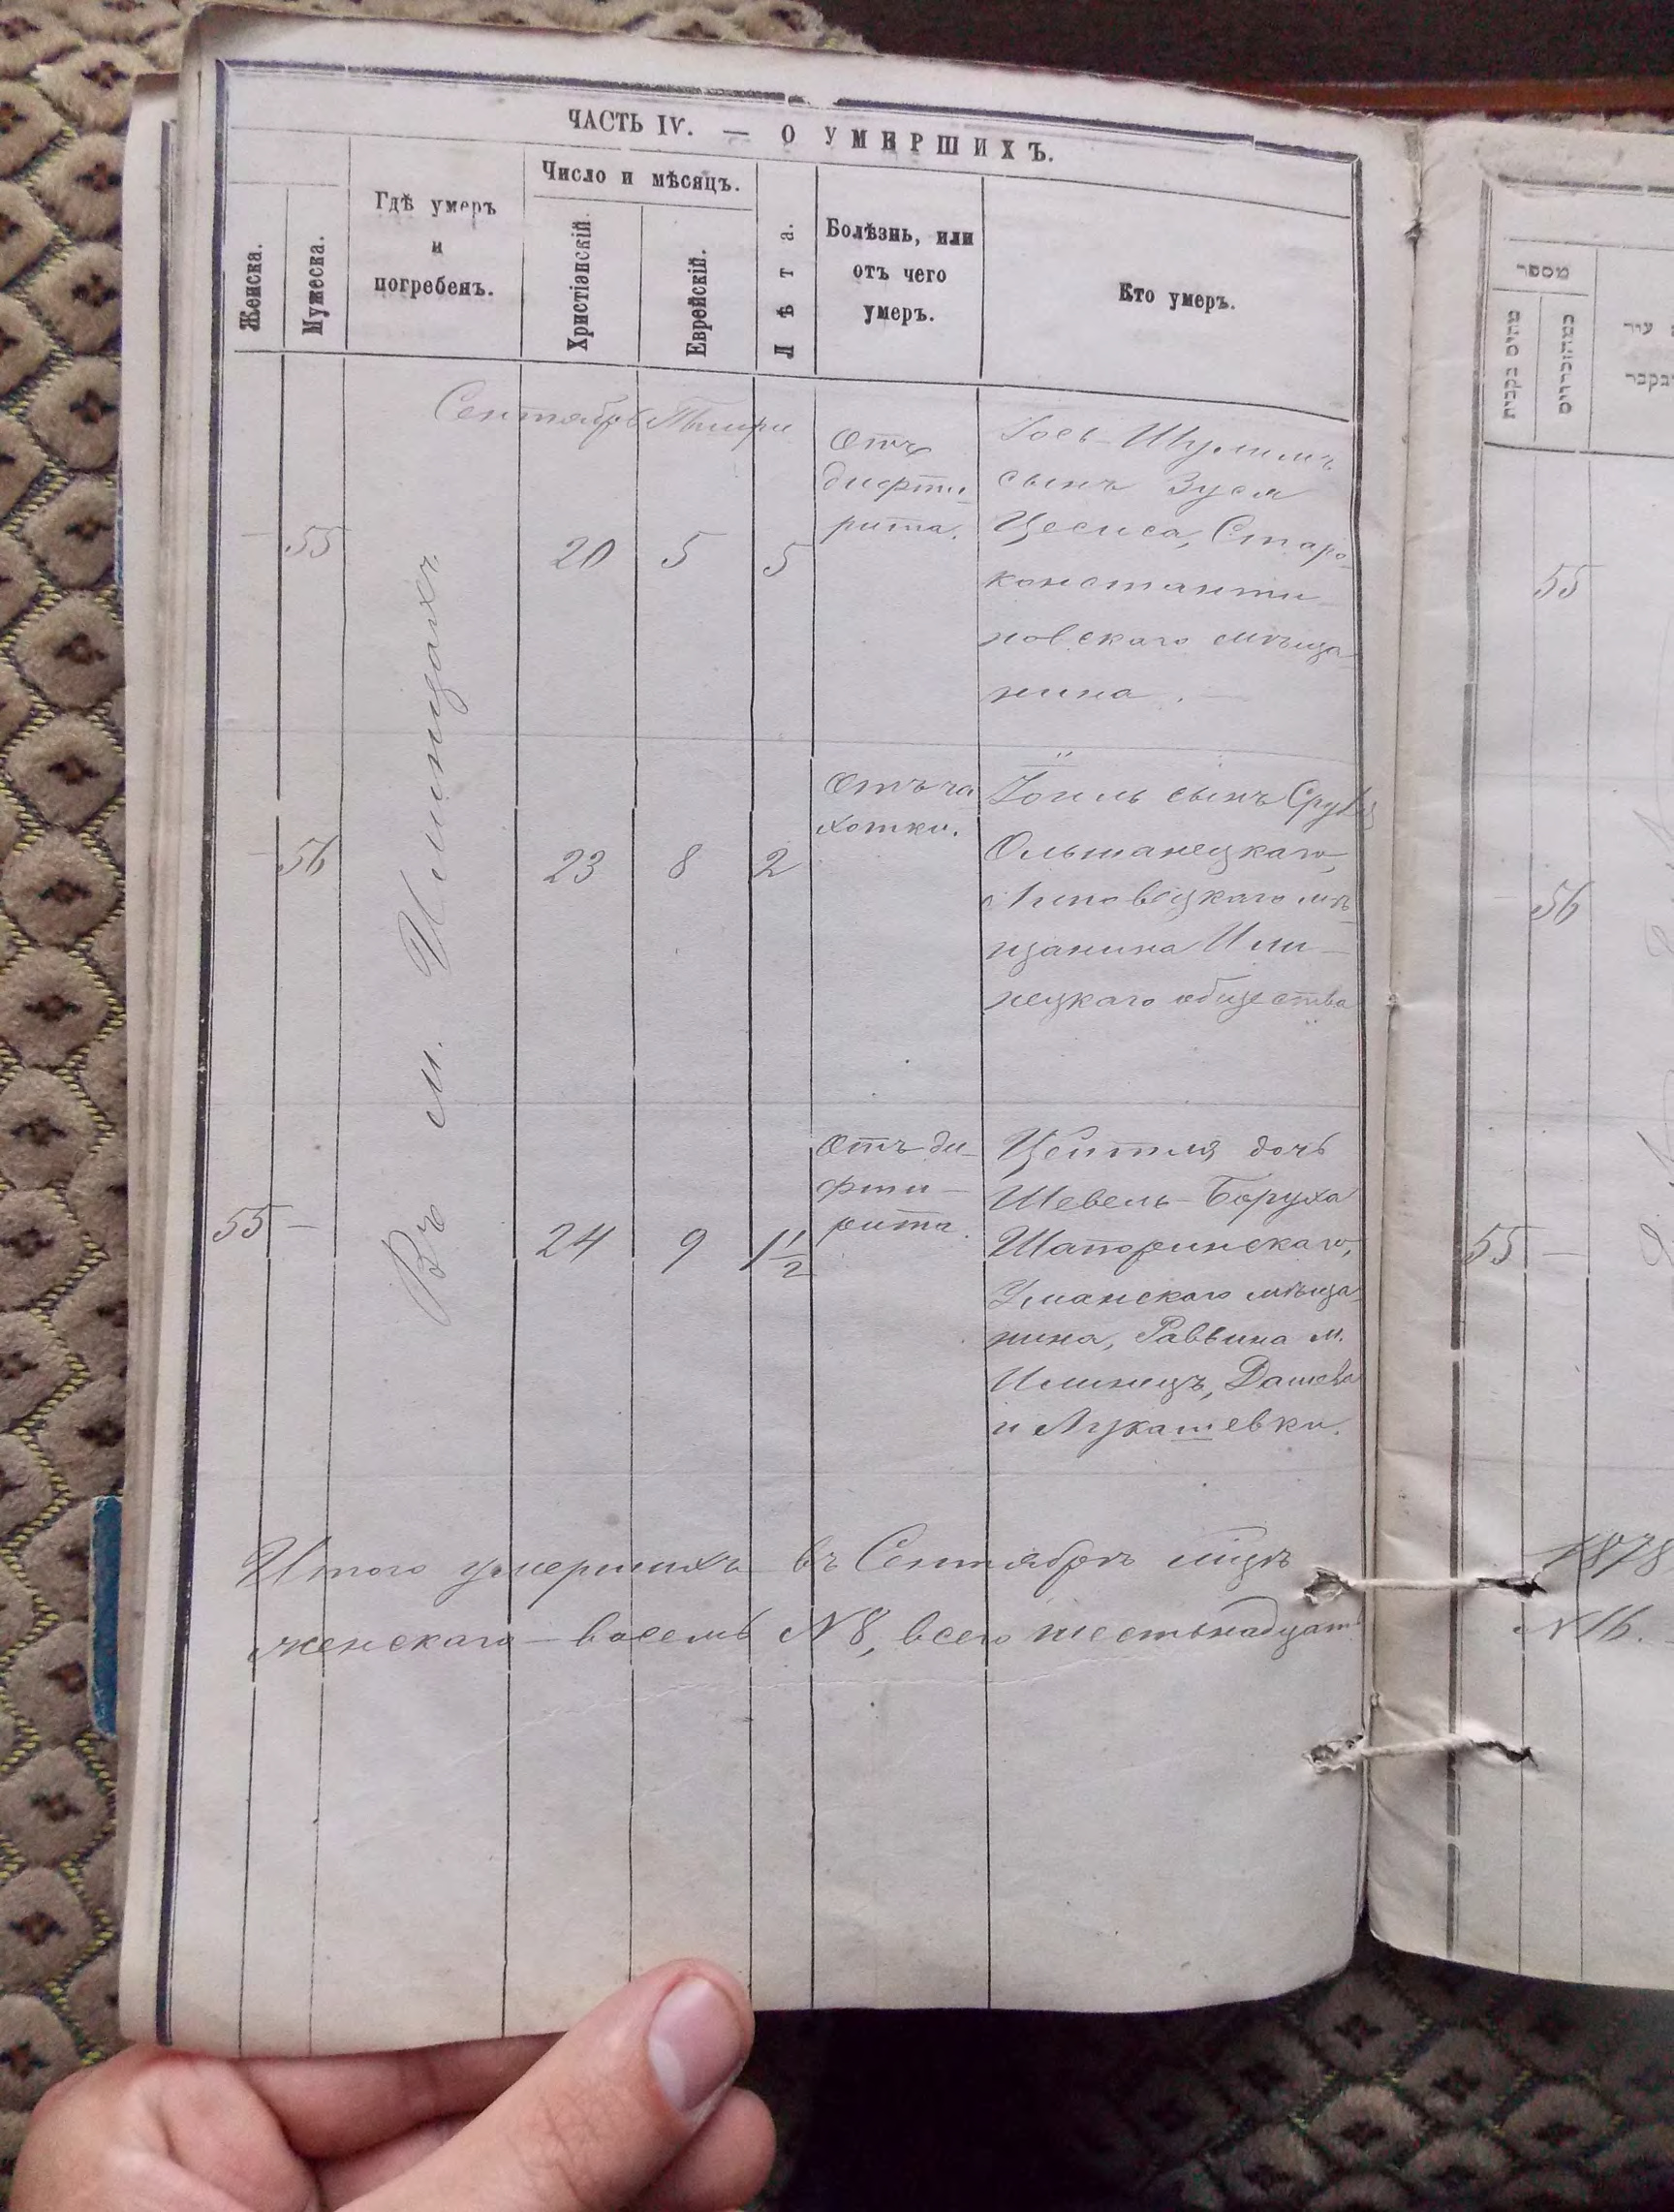 ЧАСТЬ IV. — О УМЕРШИХЪ.
Женска.
Мужеска.
Гдѣ умеръ
и
погребенъ.
Число и мѣсяцъ.
Христіанскій.
Еврейскій.
Лѣта.
Болѣзнь, или
отъ чего
умеръ.
Кто умеръ.
Въ м. Илинцахъ
Сентябрь Тишри
— 55 20 5 5
Отъ
дифти-
рита.
Іось-Шулимъ
сынъ Зуся
Цесиса, Старо-
константи-
новскаго мѣща-
нина. —
— 56 23 8 2
Отъ ча
хотки.
Іоиль сынъ Сруля
Ольшанецкаго,
Липовецкаго мѣ-
щанина Или-
нецкаго общества
55 — 24 9 1 1/2
Отъ ди-
фти-
рита.
Цейтля дочь
Шевель-Боруха
Шапоринскаго,
Уманскаго мѣща-
нина, Раввина м.
Илинецъ, Дашева
и Лукашевки.
Итого умершихъ въ Сентябрѣ мцѣ
женскаго — восемь N 8, всего шестьнадцать
מספר
55
56
55 —
1878
N 16.